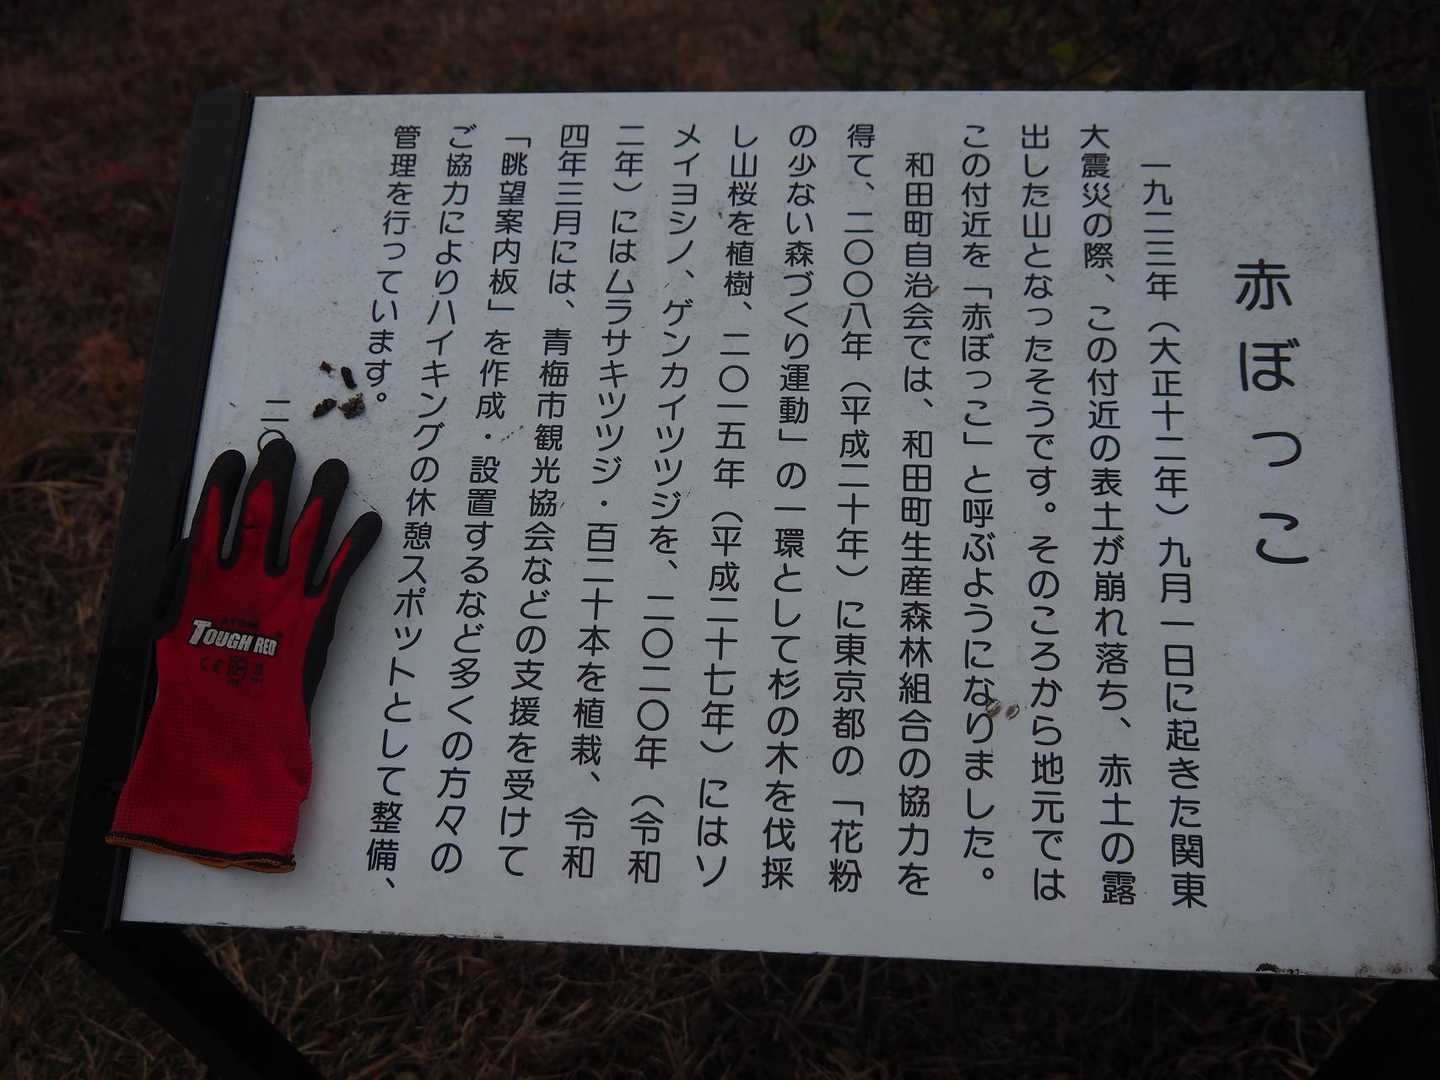 赤ぼっこ
一九二三年（大正十二年）九月一日に起きた関東
大震災の際、この付近の表土が崩れ落ち、赤土の露
出した山となったそうです。そのころから地元では
この付近を「赤ぼっこ」と呼ぶようになりました。
和田町自治会では、和田町生産森林組合の協力を
得て、二〇〇八年（平成二十年）に東京都の「花粉
の少ない森づくり運動」の一環として杉の木を伐採
し山桜を植樹、二〇一五年（平成二十七年）にはソ
メイヨシノ、ゲンカイツツジを、二〇二〇年（令和
二年）にはムラサキツツジ・百二十本を植栽、令和
四年三月には、青梅市観光協会などの支援を受けて
「眺望案内板」を作成・設置するなど多くの方々の
ご協力によりハイキングの休憩スポットとして整備、
管理を行っています。
二〇
ATOM
TOUGH RED